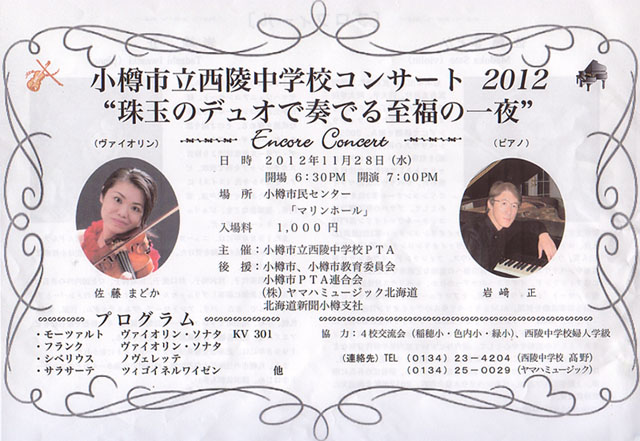 小樽市立西陵中学校コンサート 2012
“珠玉のデュオで奏でる至福の一夜”
(ヴァイオリン)
Encore Concert
(ピアノ)
日 時 2012年11月28日(水)
開場 6:30PM 開演 7:00PM
場 所 小樽市民センター
「マリンホール」
入場料 1,000 円
主 催:小樽市立西陵中学校PTA
後 援:小樽市、小樽市教育委員会
小樽市PTA連合会
(株)ヤマハミュージック北海道
北海道新聞小樽支社
佐藤 まどか
岩崎 正
プログラム
・モーツァルト ヴァイオリン・ソナタ KV 301
・フランク ヴァイオリン・ソナタ
・シベリウス ノヴェレッテ
・サラサーテ ツィゴイネルワイゼン 他
協 力:4校交流会(稲穂小・色内小・緑小)、西陵中学校婦人学級
(連絡先)TEL (0134)23-4204(西陵中学校 高野)
(0134)25-0029(ヤマハミュージック)